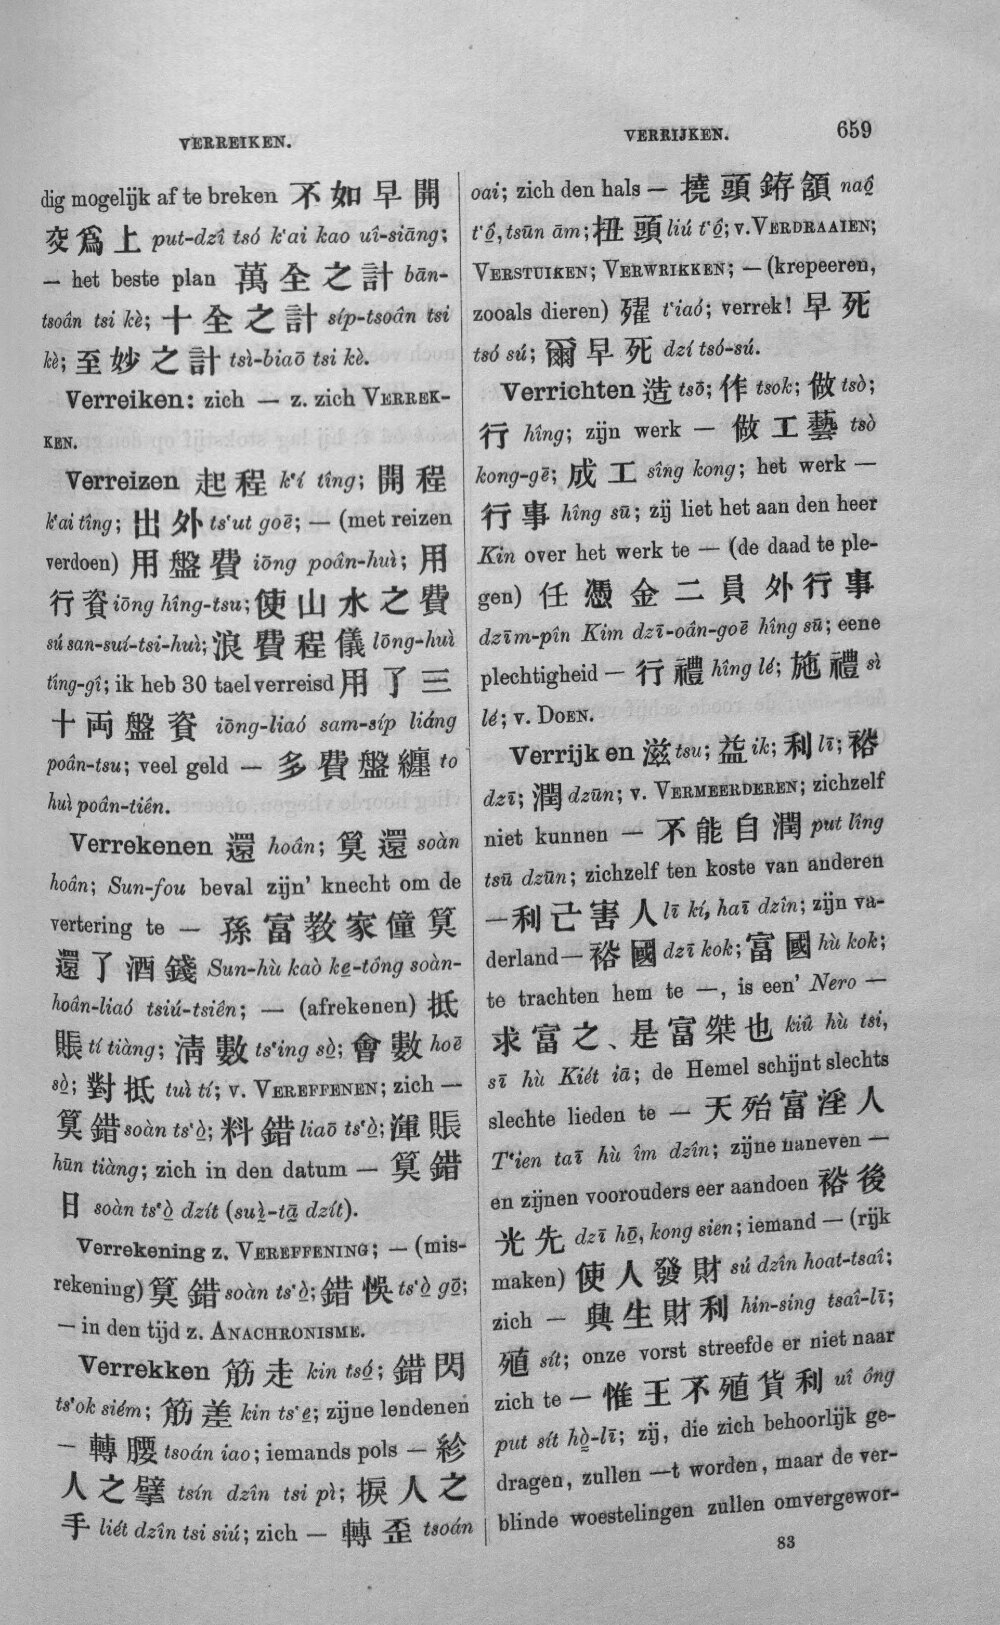 VERREIKEN.
VERRIJKEN.
659
dig mogelijk af te breken 不如早開
交爲上 put-dzî tsó k‘ai kao uî-siāng;
— het beste plan 萬全之計 bān-
tsoân tsi kè; 十全之計 síp-tsoân tsi
kè; 至妙之計 tsì-biaō tsi kè.
Verreiken: zich — z. zich VERREK-
KEN.
Verreizen 起程 k‘í tîng; 開程
k‘ai tîng; 出外 ts‘ut goē; — (met reizen
verdoen) 用盤費 iōng poân-huì; 用
行資 iōng hîng-tsu; 使山水之費
sú san-suí-tsi-huì; 浪費程儀 lōng-huì
tîng-gî; ik heb 30 tael verreisd 用了三
十両盤資 iōng-liaó sam-síp liáng
poân-tsu; veel geld — 多費盤纏 to
huì poân-tiên.
Verrekenen 還 hoân; 算還 soàn
hoân; Sun-fou beval zijn’ knecht om de
vertering te — 孫富教家僮算
還了酒錢 Sun-hù kaò ke̱-tông soàn-
hoân-liaó tsiú-tsiên; — (afrekenen) 抵
賬 tí tiàng; 清數 ts‘ing sò̱; 會數 hoē
sò̱; 對抵 tuì tí; v. VEREFFENEN; zich —
算錯 soàn ts‘ò̱; 料錯 liaō ts‘ò̱; 渾賬
hūn tiàng; zich in den datum — 算錯
日 soàn ts‘ò̱ dzít (suì̱-tā̱ dzít).
Verrekening z. VEREFFENING; — (mis-
rekening) 算錯 soàn ts‘ò̱; 錯悞 ts‘ò̱ gō̱;
— in den tijd z. ANACHRONISME.
Verrekken 筋走 kin tsó̱; 錯閃
ts‘ok siém; 筋差 kin ts‘e̱; zijne lendenen
— 轉腰 tsoán iao; iemands pols — 紾
人之擘 tsín dzîn tsi pì; 捩人之
手 liét dzîn tsi siú; zich — 轉歪 tsoán
oai; zich den hals — 撓頭鋑頷 naô̱
t‘ô̱, tsūn ām; 扭頭 liú t‘ô̱; v. VERDRAAIEN;
VERSTUIKEN; VERWRIKKEN; — (krepeeren,
zooals dieren) 殬 t‘iaó; verrek! 早死
tsó sú; 爾早死 dzí tsó-sú.
Verrichten 造 tsō; 作 tsok; 做 tsò;
行 hîng; zijn werk — 做工藝 tsò
kong-gē; 成工 sîng kong; het werk —
行事 hîng sū; zij liet het aan den heer
Kin over het werk te — (de daad te ple-
gen) 任憑金二員外行事
dzīm-pîn Kim dzī-oân-goē hîng sū; eene
plechtigheid — 行禮 hîng lé; 施禮 sì
lé; v. DOEN.
Verrijken 滋 tsu; 益 ik; 利 lī; 裕
dzī; 潤 dzūn; v. VERMEERDEREN; zichzelf
niet kunnen — 不能自潤 put lîng
tsū dzūn; zichzelf ten koste van anderen
— 利己害人 lī kí, haī dzîn; zijn va-
derland — 裕國 dzī kok; 富國 hù kok;
te trachten hem te —, is een’ Nero —
求富之、是富桀也 kiû hù tsi,
sī hù Kiét iā; de Hemel schijnt slechts
slechte lieden te — 天殆富淫人
T‘ien taī hù îm dzîn; zijne naneven —
en zijnen voorouders eer aandoen 裕後
光先 dzī hō̱, kong sien; iemand — (rijk
maken) 使人發財 sú dzîn hoat-tsaî;
zich — 興生財利 hin-sing tsaî-lī;
殖 sít; onze vorst streefde er niet naar
zich te — 惟王不殖貨利 uî ông
put sít hò̱-lī; zij, die zich behoorlijk ge-
dragen, zullen —t worden, maar de ver-
blinde woestelingen zullen omvergewor-
83